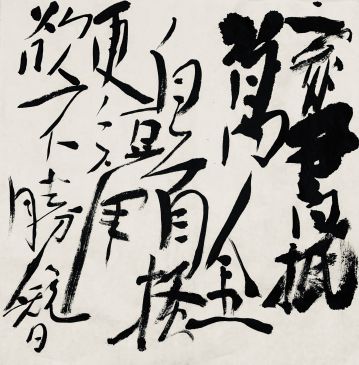 家書抵
萬金
白頭搔
更短渾
欲不勝簪